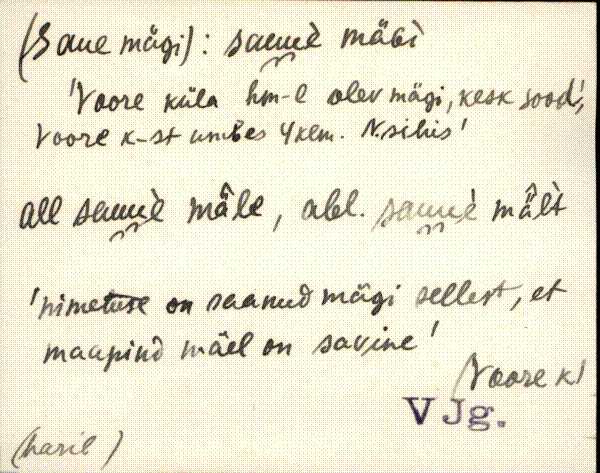 (Saue mägi): saụuè mäɢì
'Voore küla hm-l olev mägi, kesk sood',
Voore k-st umbes 4 klm. N sihis'
all sauuè mäle, abl. sauuè mält
'nimetuse on saanud mägi sellest, et
maapind mäel on savine'
(Voore k)
VJg.
(haril)